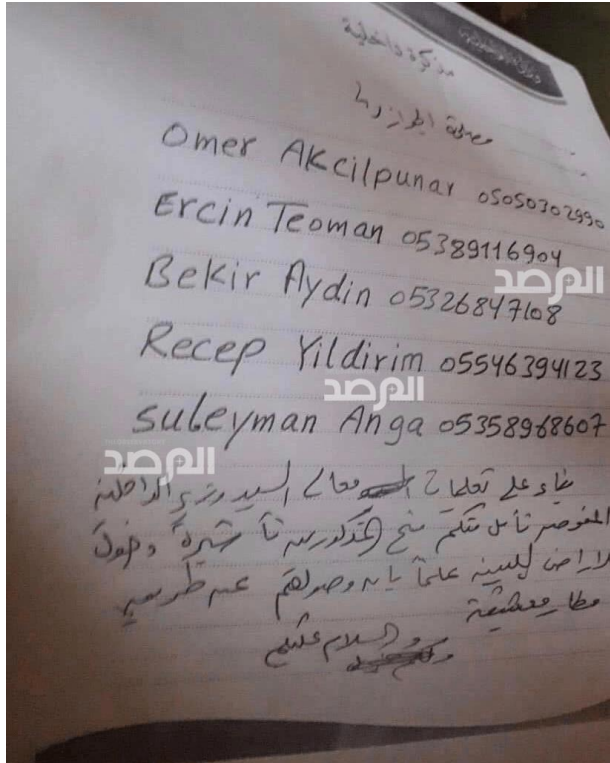 مذكرة داخلية
مصلحة الجوازات
Omer AKcilpunar 05050302990
Ercin Teoman 05389116904
المرصد
Bekir Aydin 05326847108
Recep Yildirim 05546394123
المرصد
suleyman Anga 05358968607
المرصد
بناء على تعليمات معالي السيد وزير الداخلية
المفوض نأمل منكم منح المذكورين تأشيرة دخول
لاراضي الليبية علماً بان وصولهم عن طريق
مطار معيتيقة
والسلام عليكم